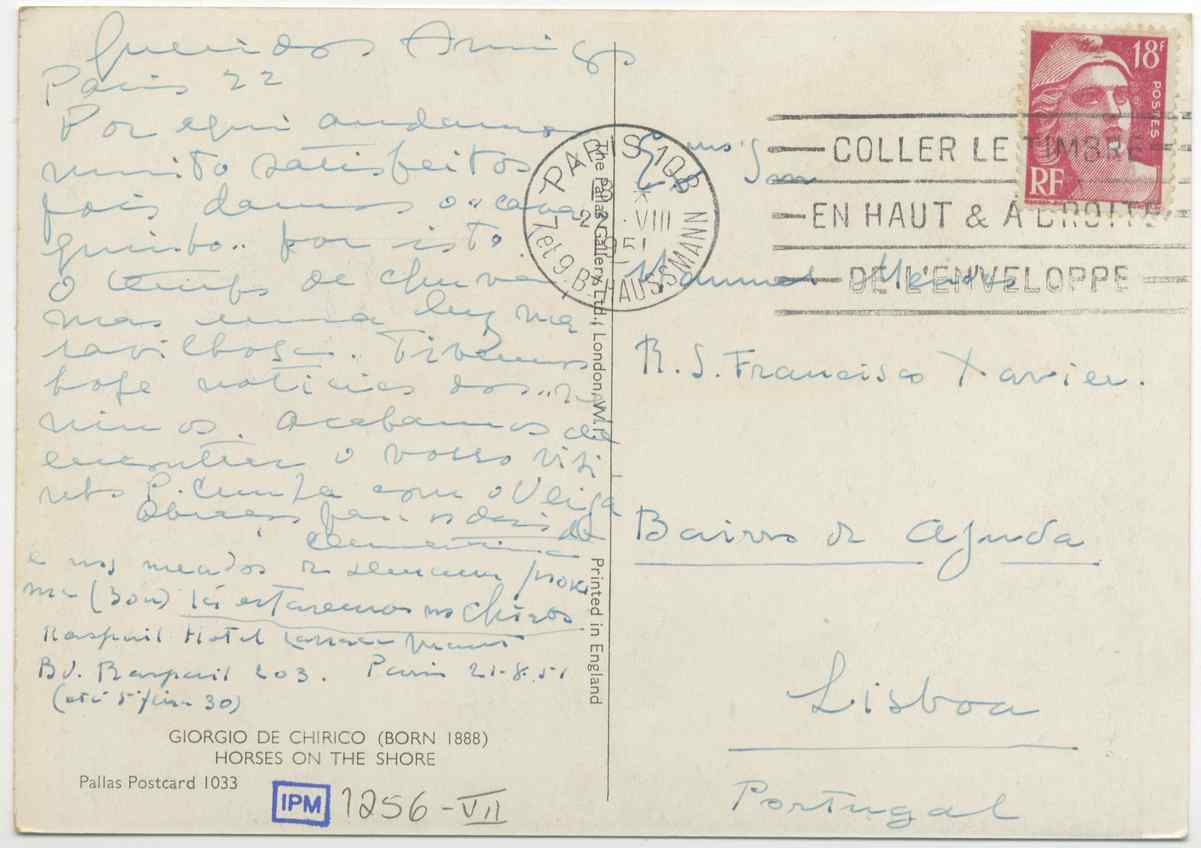 Queridos Amigos
Paris 22
Por aqui andamos
muito satisfeitos
pois damos o "cava
quinho" por isto.
O tempo de chuva,
mas uma luz ma
ravilhosa. Tivemos
hoje notícias dos "me
ninos. Acabamos de
encontrar o vosso visi
nho P. Cunha com o Veiga
Abraços para os dois de
Clementina
e nos meados de semana proxi
ma (30) lá estaremos no
Raspail Hotel
Bd. Raspail 203. Paris 21-8-51
(até 5ª feira 30)
GIORGIO DE CHIRICO (BORN 1888)
HORSES ON THE SHORE
Pallas Postcard 1033
IPM 1256-VII
The Pallas Gallery Ltd., London, W.1.
Printed in England
PARIS 108
VIII
1951
7 et 9. Bd HAUSSMANN
COLLER LE TIMBRE
EN HAUT & À DROITE
DE L'ENVELOPPE
18F
POSTES
RF
Manuel Mendes
R. S. Francisco Xavier.
Bairro da Ajuda
Lisboa
Portugal